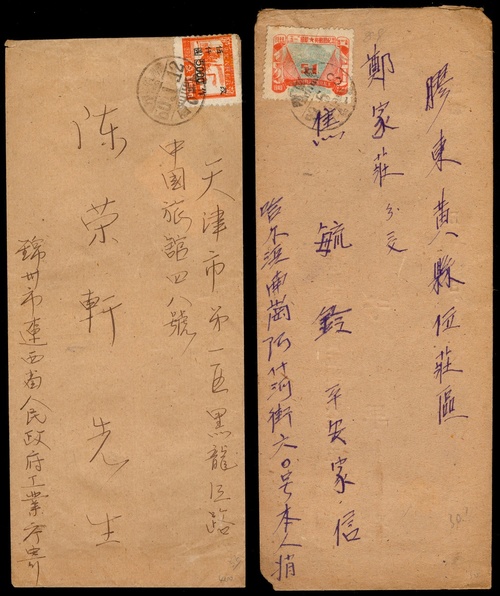 天津市第一區黑龍江路
中國旅館四八號
陈荣軒先生
錦州市遼西省人民政府工業廳寄
膠東黄縣伍莊區
鄭家莊分交
焦毓鈴平安家信
哈尔滨南崗阿什河街六〇号本人捎